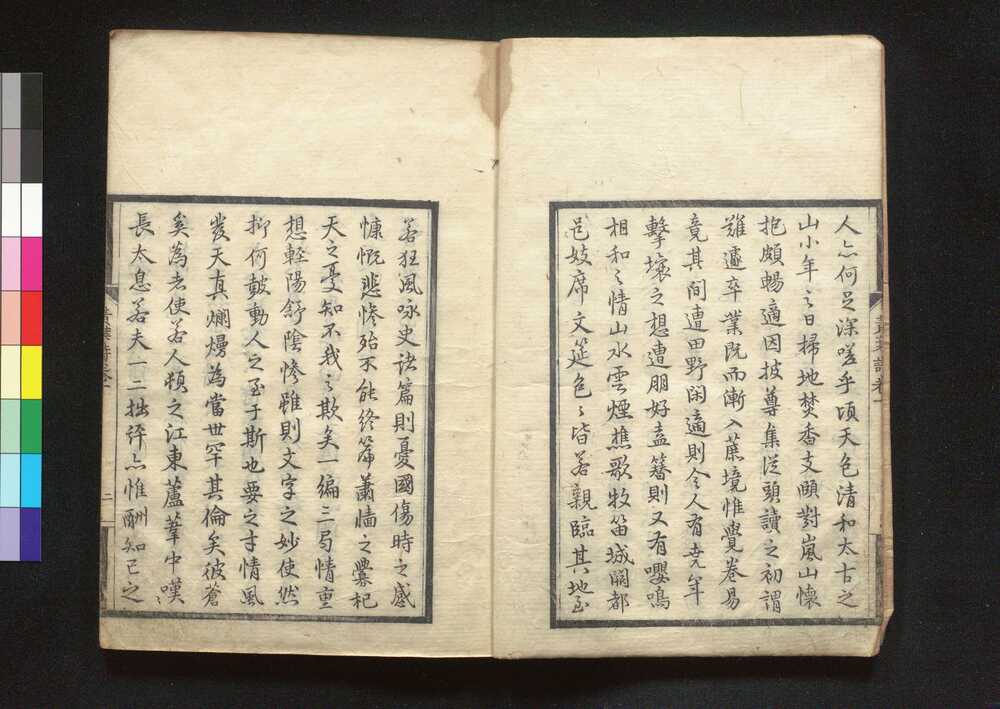 人亦何足深嗟乎頃天色清和太古之
山小年之日掃地焚香支頤對嵐山懷
抱頗暢適因披尊集從頭讀之初謂
難遽卒業既而漸入蔗境惟覺卷易
竟其間遭田野閑適則令人有堯年
擊壤之想遭朋好盍簪則又有嚶鳴
相和之情山水雲煙樵歌牧笛城闕都
邑妓席文筵色〻皆若親臨其地至
若狂風咏史諸篇則憂國傷時之感
慷慨悲慘殆不能終篇蕭墻之釁杞
天之憂知不我之欺矣一編三局情重
想輕陽舒陰慘雖則文字之妙使然
抑何鼓動人之至于斯也要之才情風
發天真爛熳為當世罕其倫矣彼蒼
矣為老使若人頓之江東蘆葦中嘆
長太息若夫一二拙評亦惟酬知己之